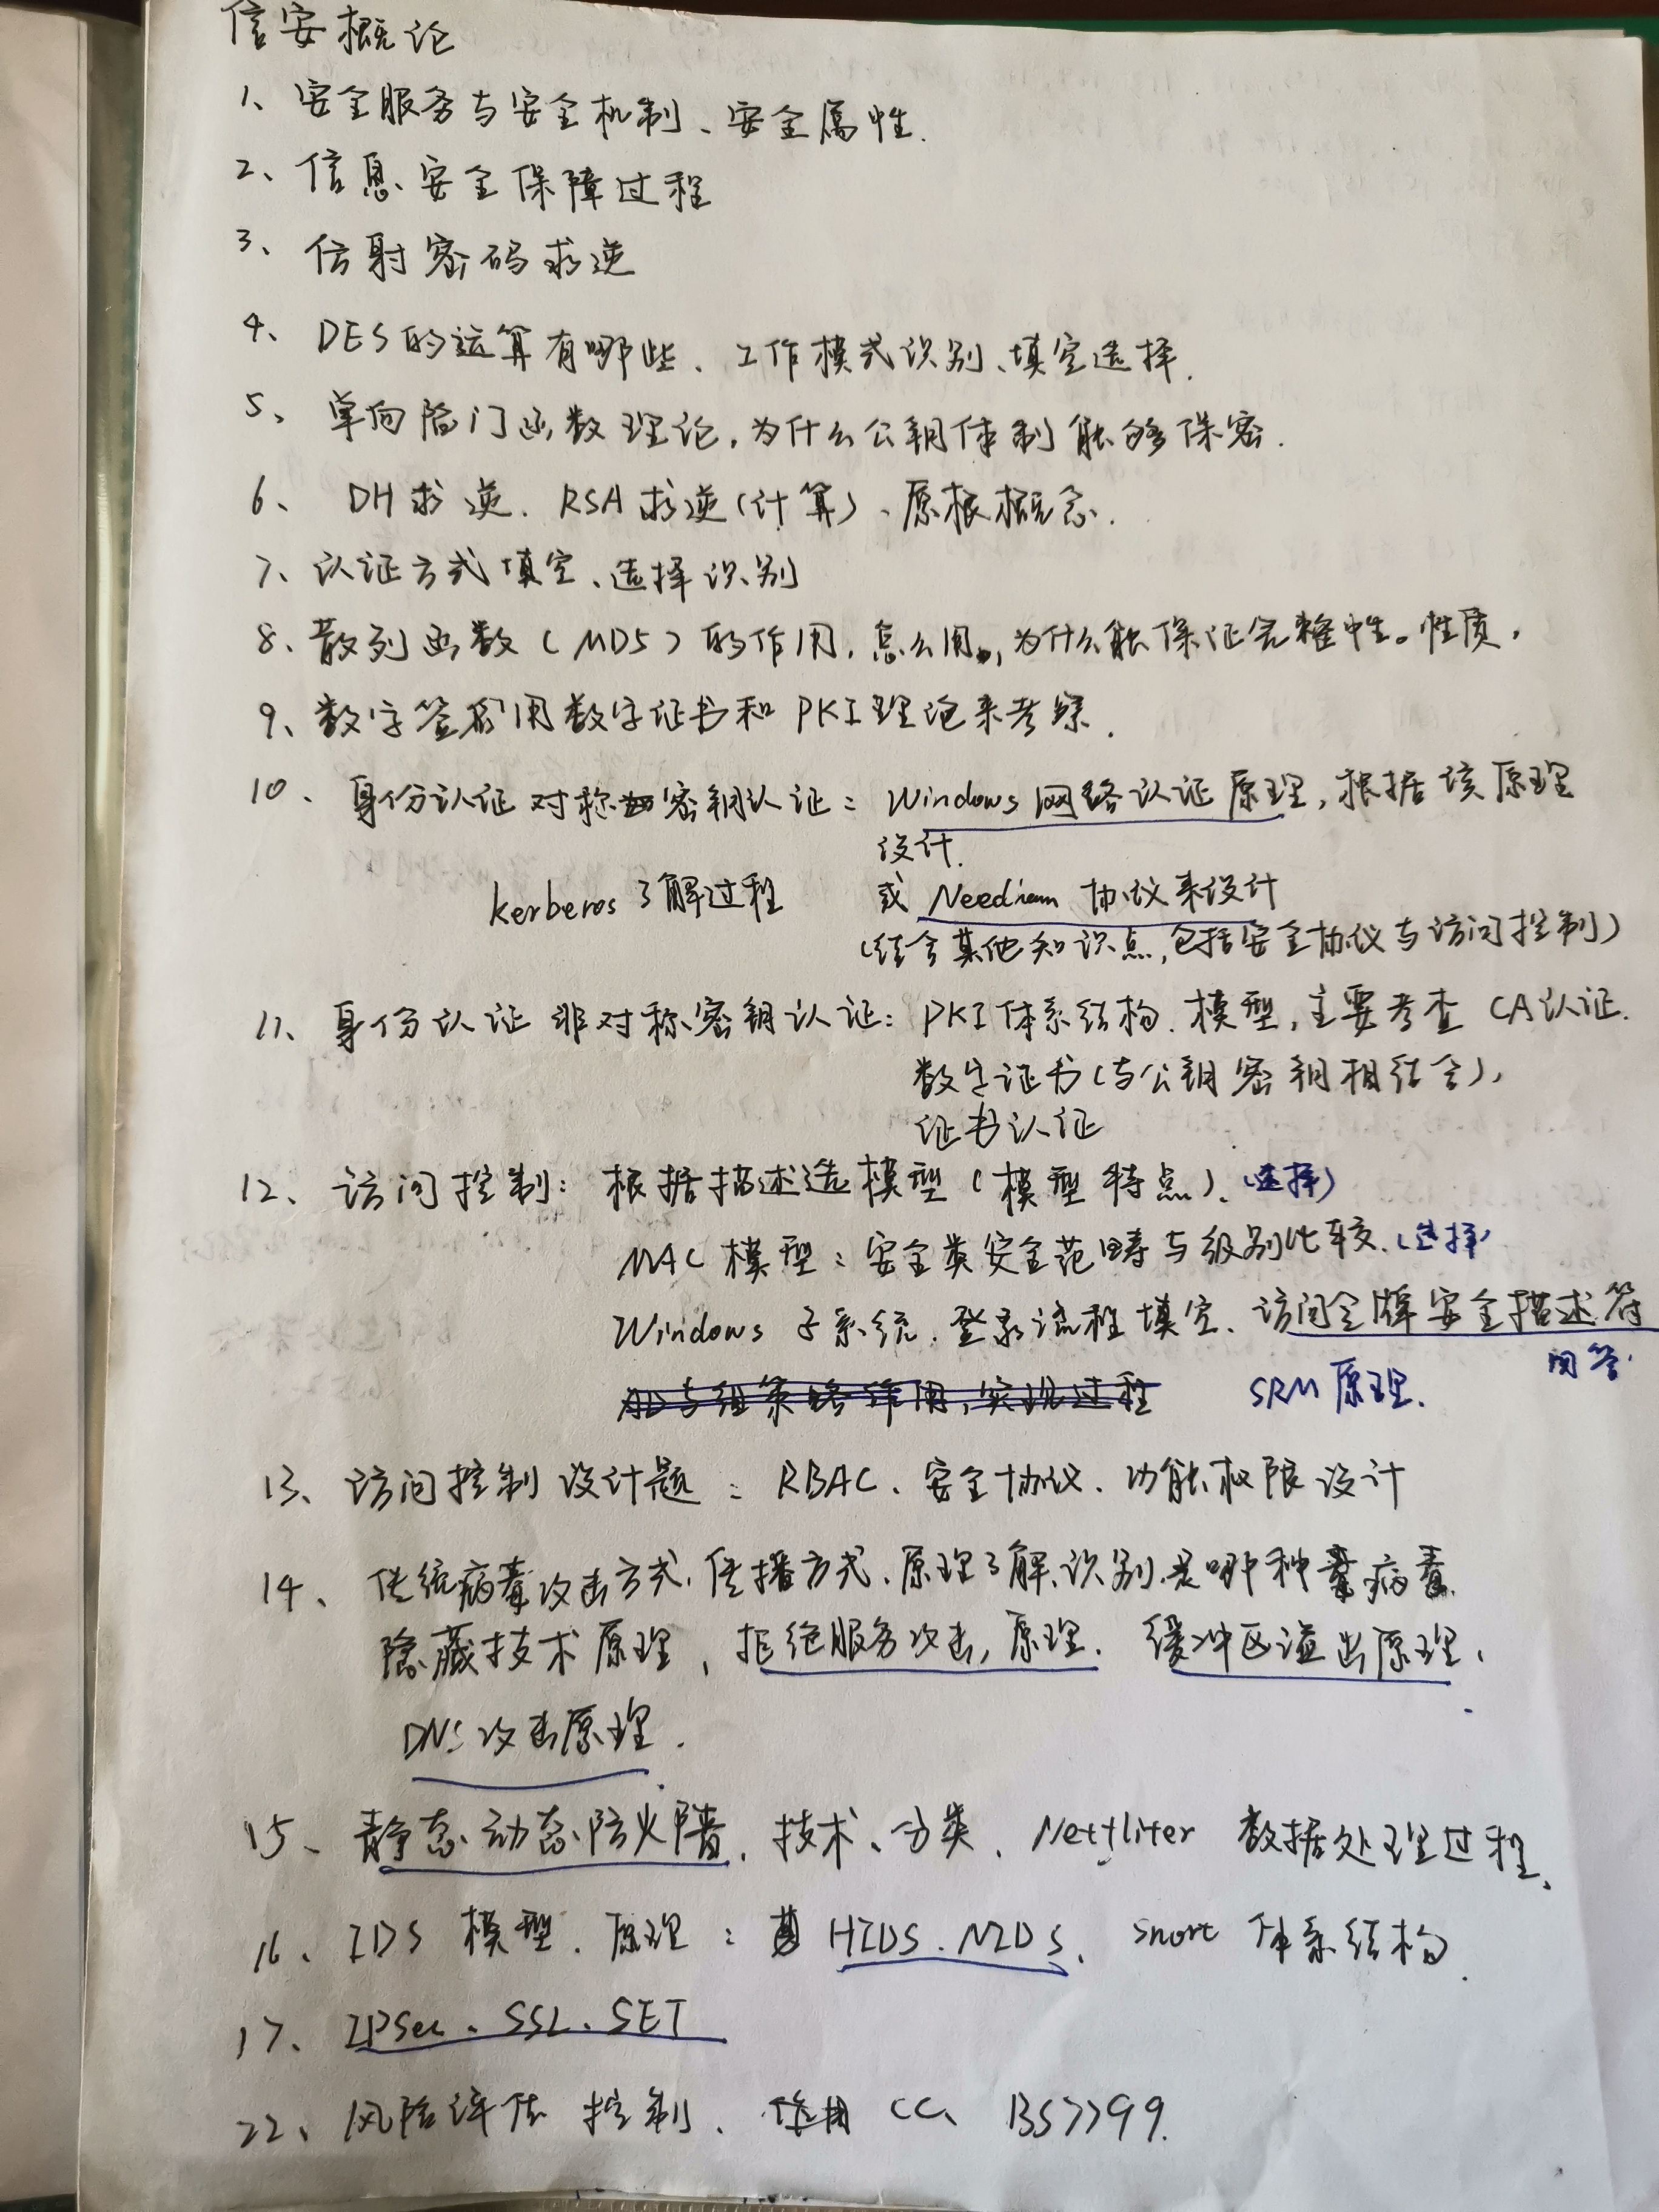 信安概论
1、安全服务与安全机制、安全属性.
2、信息安全保障过程
3、仿射密码求逆
4、DES的运算有哪些、工作模式识别、填空选择.
5、单向陷门函数理论,为什么公钥体制能够保密.
6、DH求逆.RSA求逆(计算)、原根概念.
7、认证方式填空、选择识别
8、散列函数(MD5)的作用,怎么用,为什么能保证完整性。性质,
9、数字签名用数字证书和PKI理论来考察.
10、身份认证 对称密钥认证:Windows网络认证原理,根据该原理
设计.
kerberos了解过程 或Needham协议来设计
(结合其他知识点,包括安全协议与访问控制)
11、身份认证 非对称密钥认证:PKI体系结构.模型,主要考查CA认证.
数字证书(与公钥密钥相结合),
证书认证
12、访问控制:根据描述选模型(模型特点).(选择)
MAC模型:安全类安全范畴与级别比较.(选择)
Windows子系统.登录流程填空、访问令牌安全描述符
问答.
AD与组策略作用,实现过程 SRM原理.
13、访问控制设计题:RBAC、安全协议、功能权限设计
14、传统病毒攻击方式,传播方式、原理了解,识别是哪种病毒.
隐藏技术原理,拒绝服务攻击,原理.缓冲区溢出原理,
DNS攻击原理.
15、静态.动态防火墙.技术、分类.Netfliter数据处理过程、
16、IDS模型.原理:HIDS.NIDS、snort体系结构.
17、IPSec、SSL、SET
22、风险评估 控制、CC、BS7799.